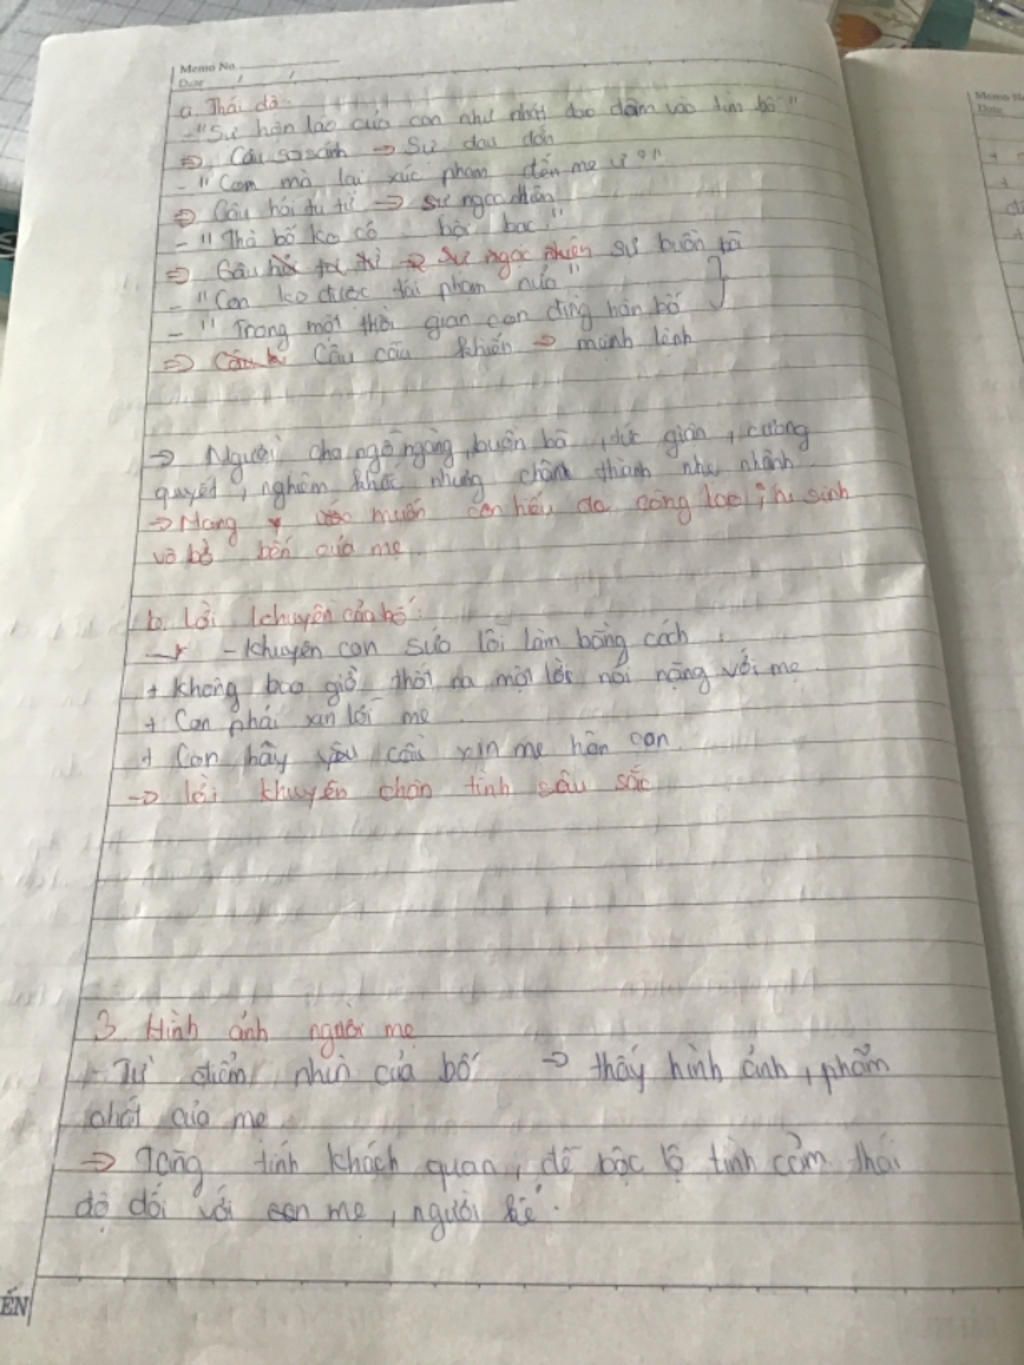 Memo No.
Date / /
a. Thái độ:
- "Sự hỗn láo của con như nhát dao đâm vào tim bố"
=> Câu so sánh -> Sự đau đớn
- "Con mà lại xúc phạm đến mẹ ư?"
=> Câu hỏi tu từ -> sự ngạc nhiên
- "Thà bố ko có bội bạc"
=> Câu -> sự ngạc nhiên sự buồn bã
- "Con ko được tái phạm nữa"
- "Trong một thời gian con đừng hôn bố
=> Câu cầu khiến -> mệnh lệnh
-> Người cha ngỡ ngàng, buồn bã, tức giận, cương
quyết, nghiêm khắc nhưng chân thành nhẹ nhành
-> Mong muốn con hiểu đc công lao, hi sinh
vô bờ bến của mẹ
b. Lời khuyên của bố:
- Khuyên con sửa lỗi lầm bằng cách:
+ Không bao giờ thốt ra một lời nói nặng với mẹ
+ Con phải xin lỗi mẹ
+ Con hãy cầu xin mẹ hôn con
-> lời khuyên chân tình sâu sắc
3. Hình ảnh người mẹ
- Từ điểm nhìn của bố -> thấy hình ảnh, phẩm
chất của mẹ
=> Tăng tính khách quan, để bộc lộ tình cảm thái
độ đối với mẹ, người kể.
ẾN
Memo No
Date